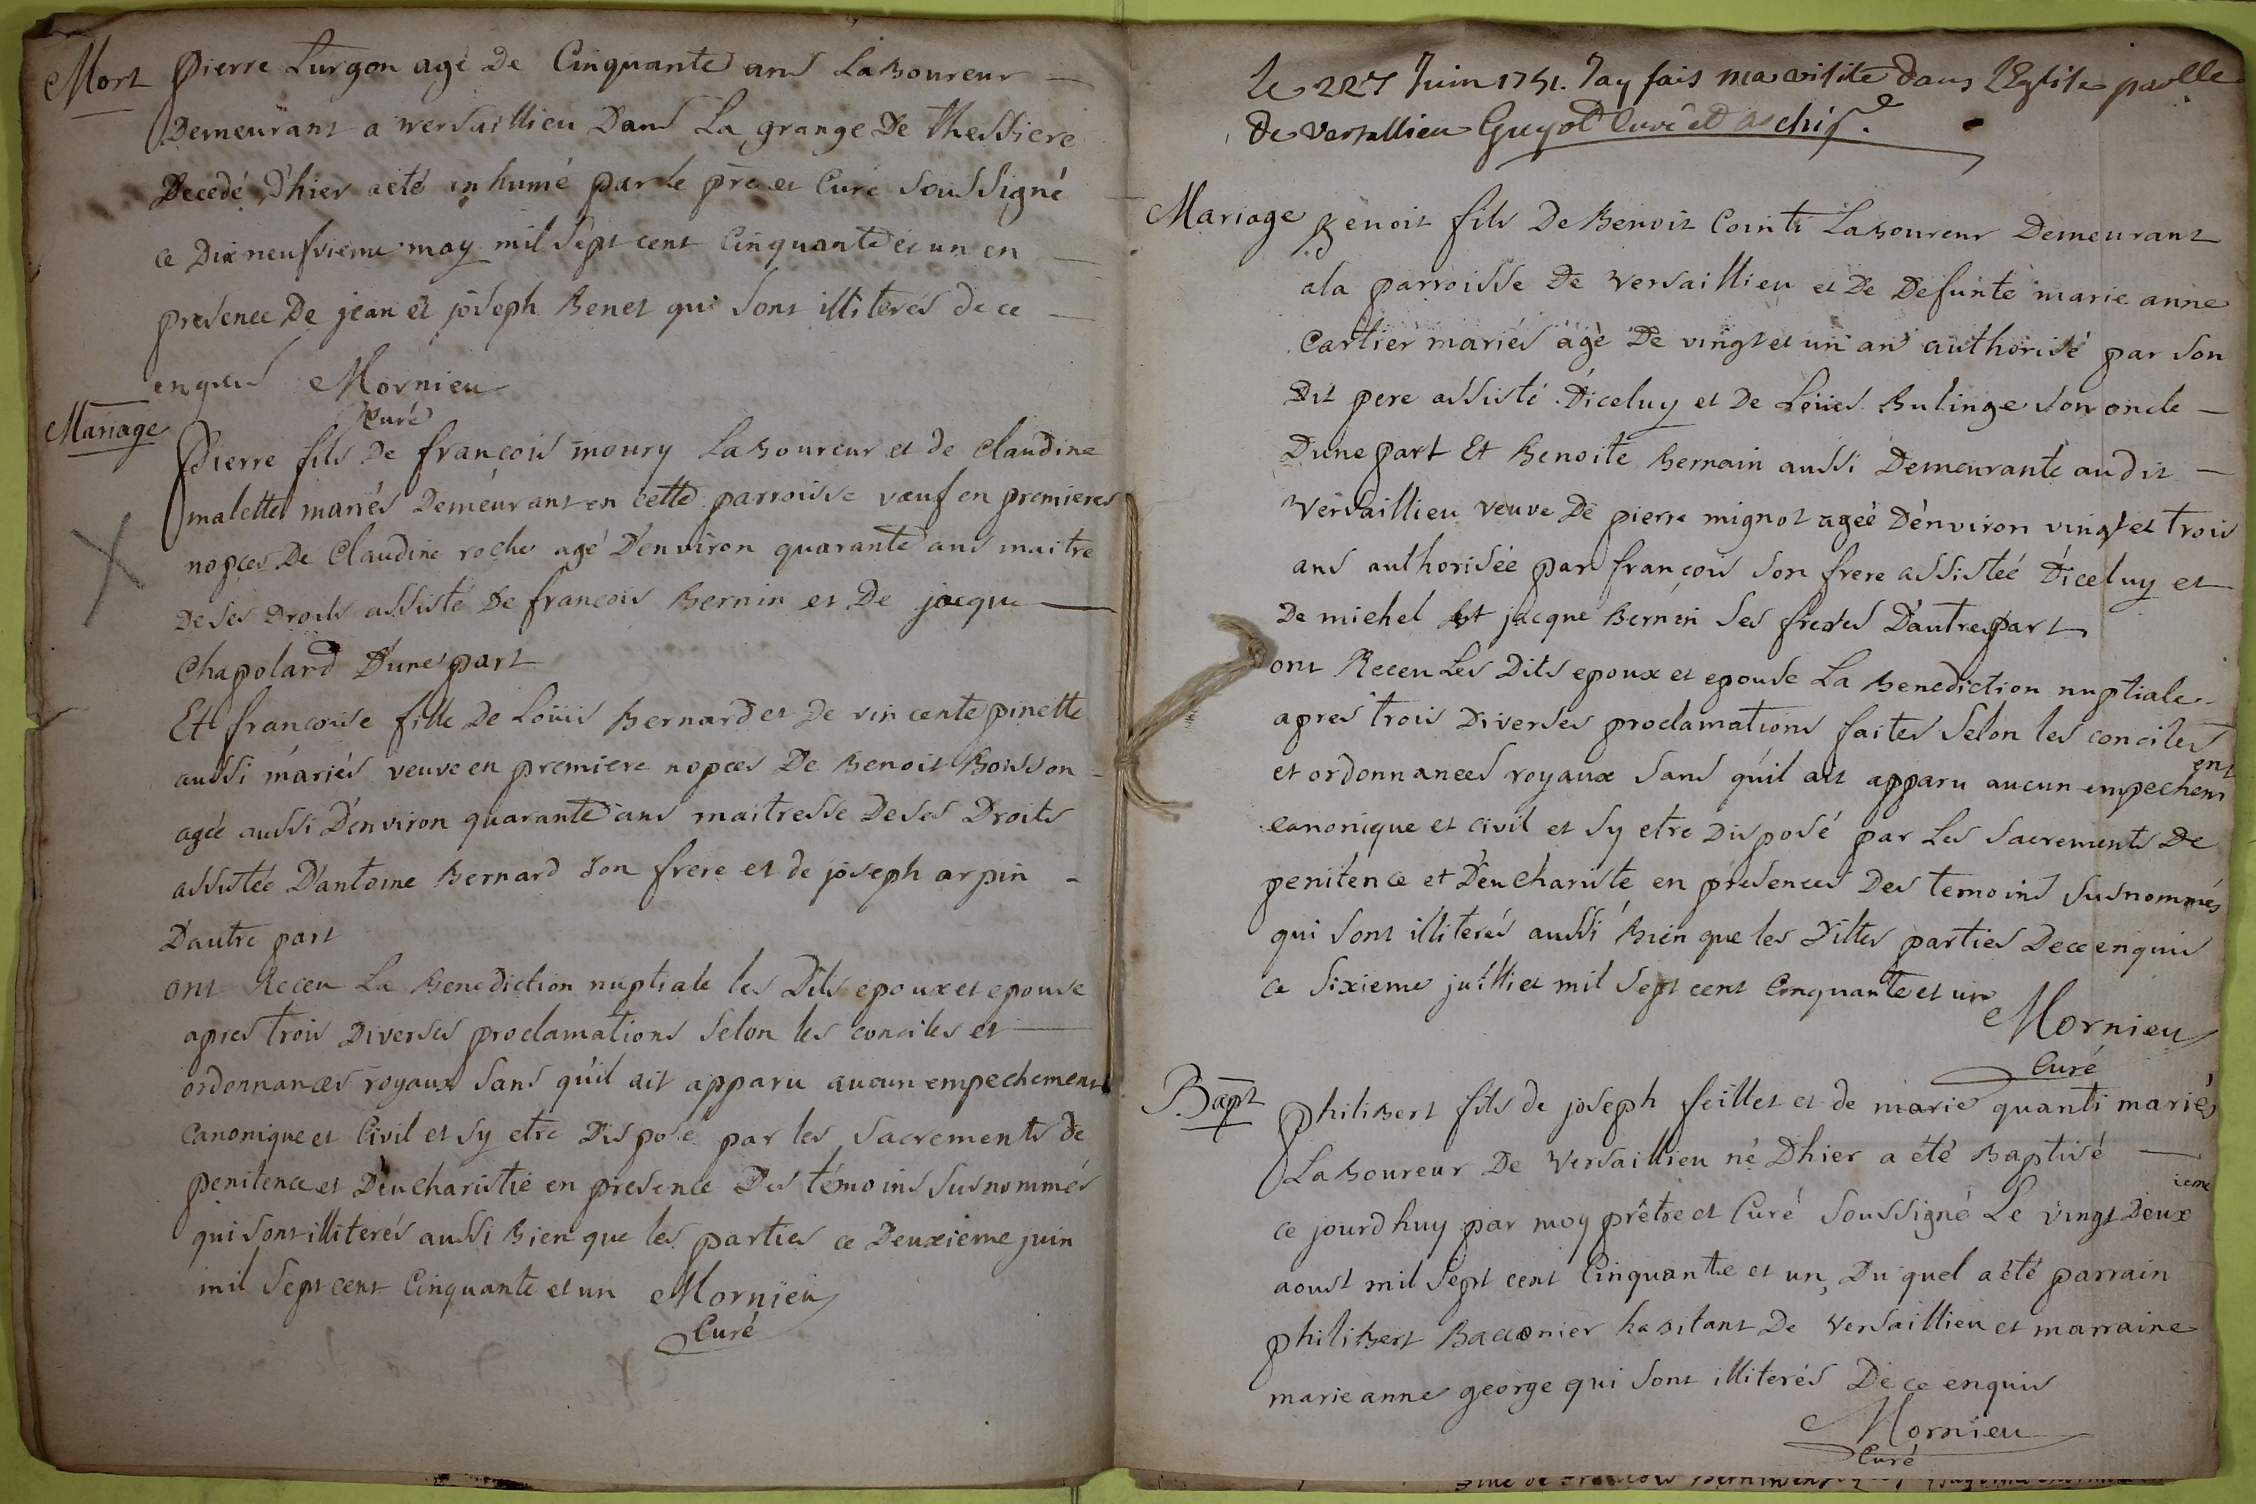 Mort
Pierre Lurgon agé De Cinquante ans Laboureur
Demeurant a versaillieu Dans La grange De Thessiere
Decedé D'hier a eté inhumé par le pre et Curé Soussigné
ce Dix neufvieme may mil Sept cent Cinquante et un en
presence De jean et joseph Benet qui Sont illiterés de ce
enquis Mornieu
Curé
Mariage
Pierre fils De françois moury Laboureur et de Claudine
malette mariés Demeurant en cette parroisse vœuf en premieres
nopces De Claudine roche agé D'environ quarante ans maitre
De ses Droits assisté De françois Bernin et De jacque
Chapolard D'une part
Et françoise fille De Loüis Bernard et De vincente pinette
aussi mariés veuve en premiere nopces De Benoit Boisson
agée aussi D'environ quarante ans maitresse De ses Droits
assistée D'antoine Bernard son frere et de joseph arpin
D'autre part
ont Receu La Benediction nuptiale les Dits epoux et epouse
apres trois Diverses proclamations Selon les conciles et
ordonnances royaux Sans qu'il ait apparu aucun empechement
Canonique et Civil et Sy etre Disposé par les Sacrements de
penitence et D'eucharistie en presence Des témoins susnommés
qui sont illiterés aussi Bien que les parties ce Deuxieme juin
mil Sept cent Cinquante et un Mornieu
Curé
le 22e Juin 1751. J'ay fais ma visite dans l'Eglise paelle
de Versallieu Guyot Curé et
Mariage
Benoit fils De Benoit Cointi Laboureur Demeurant
a la parroisse De Versaillieu et De Defunte marie anne
Cartier mariés agé De vingt et un an authorisé par son
Dit pere assisté D'iceluy et De Loüis Bulinge son oncle
D'une part Et Benoite Bernain aussi Demeurante au dit
Versaillieu veuve De pierre mignot ageé D'environ vingt et trois
ans authorisée par françois son frere assisteé D'iceluy et
De michel et jacque Bernin ses freres D'autre part
ont Receu Les Dits epoux et epouse La Benediction nuptiale
apres trois Diverses proclamations faites Selon les conciles
et ordonnances royaux sans qu'il ait apparu aucun empechement
canonique et civil et Sy etre Disposé par Les Sacrements De
penitence et D'euchariste en presences Des temoins susnommés
qui Sont illiterés aussi Bien que les Dittes parties De ce enquis
ce Sixieme juilliet mil Sept cent Cinquante et un
Mornieu
Curé
Bapt
Philibert fils de joseph feillet et de marie quanti mariés
Laboureur De Versaillieu né D'hier a été Baptisé
ce jourd'huy par moy prêtre et Curé Soussigné Le vingt Deuxieme
aoust mil Sept cent Cinquante et un, Du quel a été parrain
philibert Bacconier habitant De Versaillieu et marraine
marie anne george qui Sont illiterés De ce enquis
Mornieu
Curé